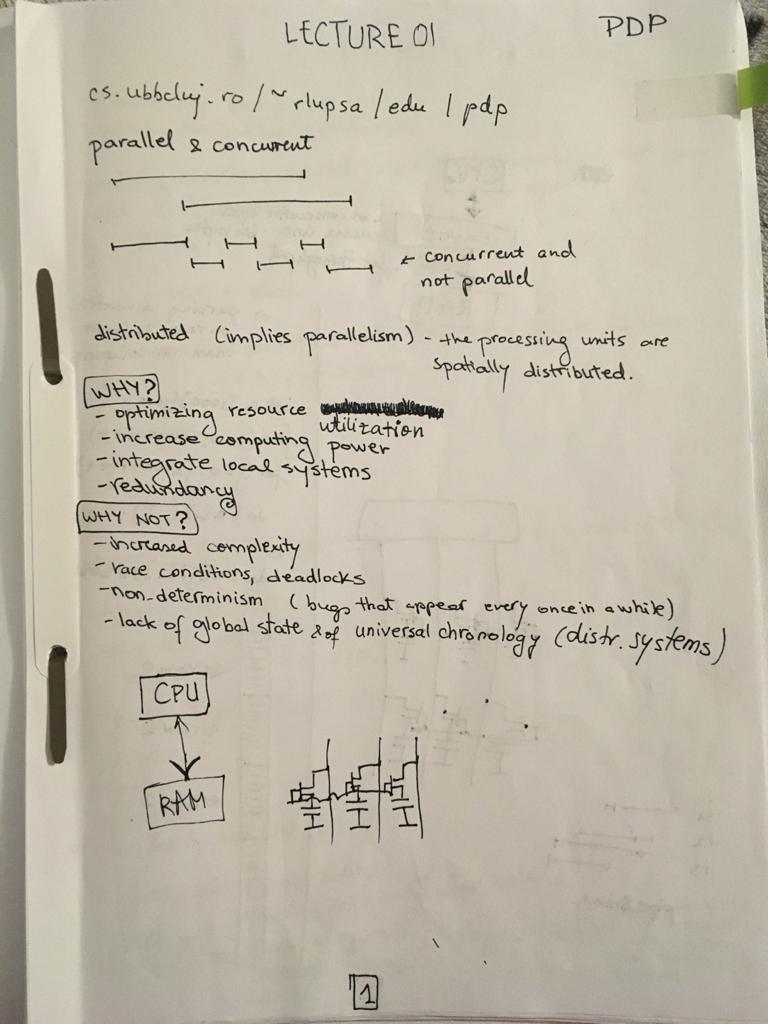 LECTURE 01 PDP
cs.ubbcluj.ro/~rlupsa/edu/pdp
parallel & concurrent
← concurrent and
not parallel
distributed (implies parallelism) - the processing units are
spatially distributed.
WHY?
- optimizing resource utilization
- increase computing power
- integrate local systems
- redundancy
WHY NOT?
- increased complexity
- race conditions, deadlocks
- non-determinism (bugs that appear every once in a while)
- lack of global state & of universal chronology (distr. systems)
CPU
RAM
1